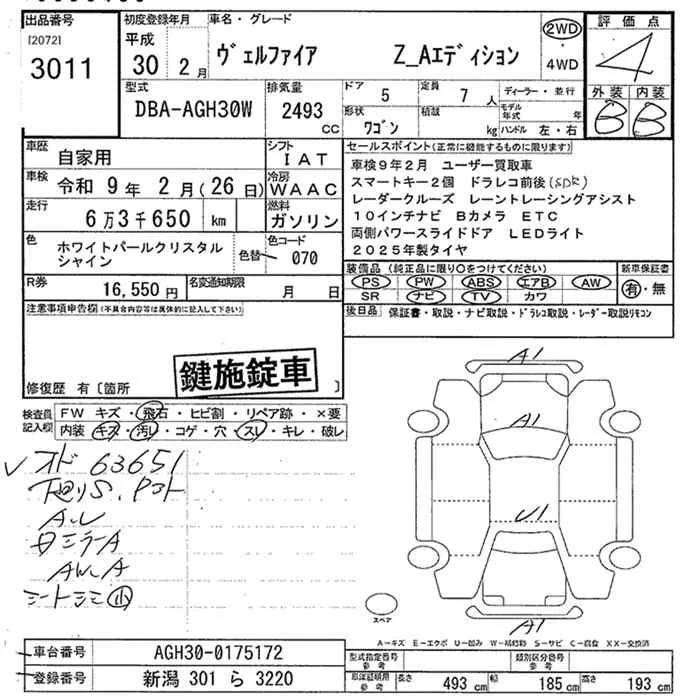 出品番号
[2072]
3011
初度登録年月
平成
30 2月
車名・グレード
ヴェルファイア Z_Aエディション
2WD
・
4WD
評価点
4
外装 内装
B B
型式
DBA-AGH30W
排気量
2493
CC
ドア 5
定員 7 人
形状 ワゴン
積載 kg
ディーラー・並行
モデル年式 年
ハンドル 左・右
車歴 自家用
シフト IAT
車検 令和 9年 2月(26日)
冷房 WAAC
走行 6万3千650 km
燃料 ガソリン
色 ホワイトパールクリスタル
シャイン
色替
色コード 070
R券 16,550円
名変通知期限 月 日
セールスポイント(正常に機能するものに限ります)
車検9年2月 ユーザー買取車
スマートキー2個 ドラレコ前後(SDR)
レーダークルーズ レーントレーシングアシスト
10インチナビ Bカメラ ETC
両側パワースライドドア LEDライト
2025年製タイヤ
装備品(純正品に限り○をつけてください)
PS PW ABS エアB AW
SR ナビ TV カワ
新車保証書
有・無
後日品 保証書・取説・ナビ取説・ドラレコ取説・レーダー取説リモコン
注意事項申告欄(不具合内容等は具体的に記入して下さい)
鍵施錠車
修復歴 有〔箇所 〕
検査員
記入欄
FW キズ・飛石・ヒビ割・リペア跡・×要
内装 キズ・汚レ・コゲ・穴・スレ・キレ・破レ
オド 63651
下廻りS、Pコト
A.U
日ミラーA
AW.A
シートシミ小
A1
A1
U1
A1
スペア
A-キズ E-エクボ U-凹み W-補修跡 S-サビ C-腐食 XX-交換済
車台番号 AGH30-0175172
登録番号 新潟 301 ら 3220
型式指定番号
参考
類別区分番号
参考
車庫証明用
参考
長さ 493 cm 幅 185 cm 高さ 193 cm